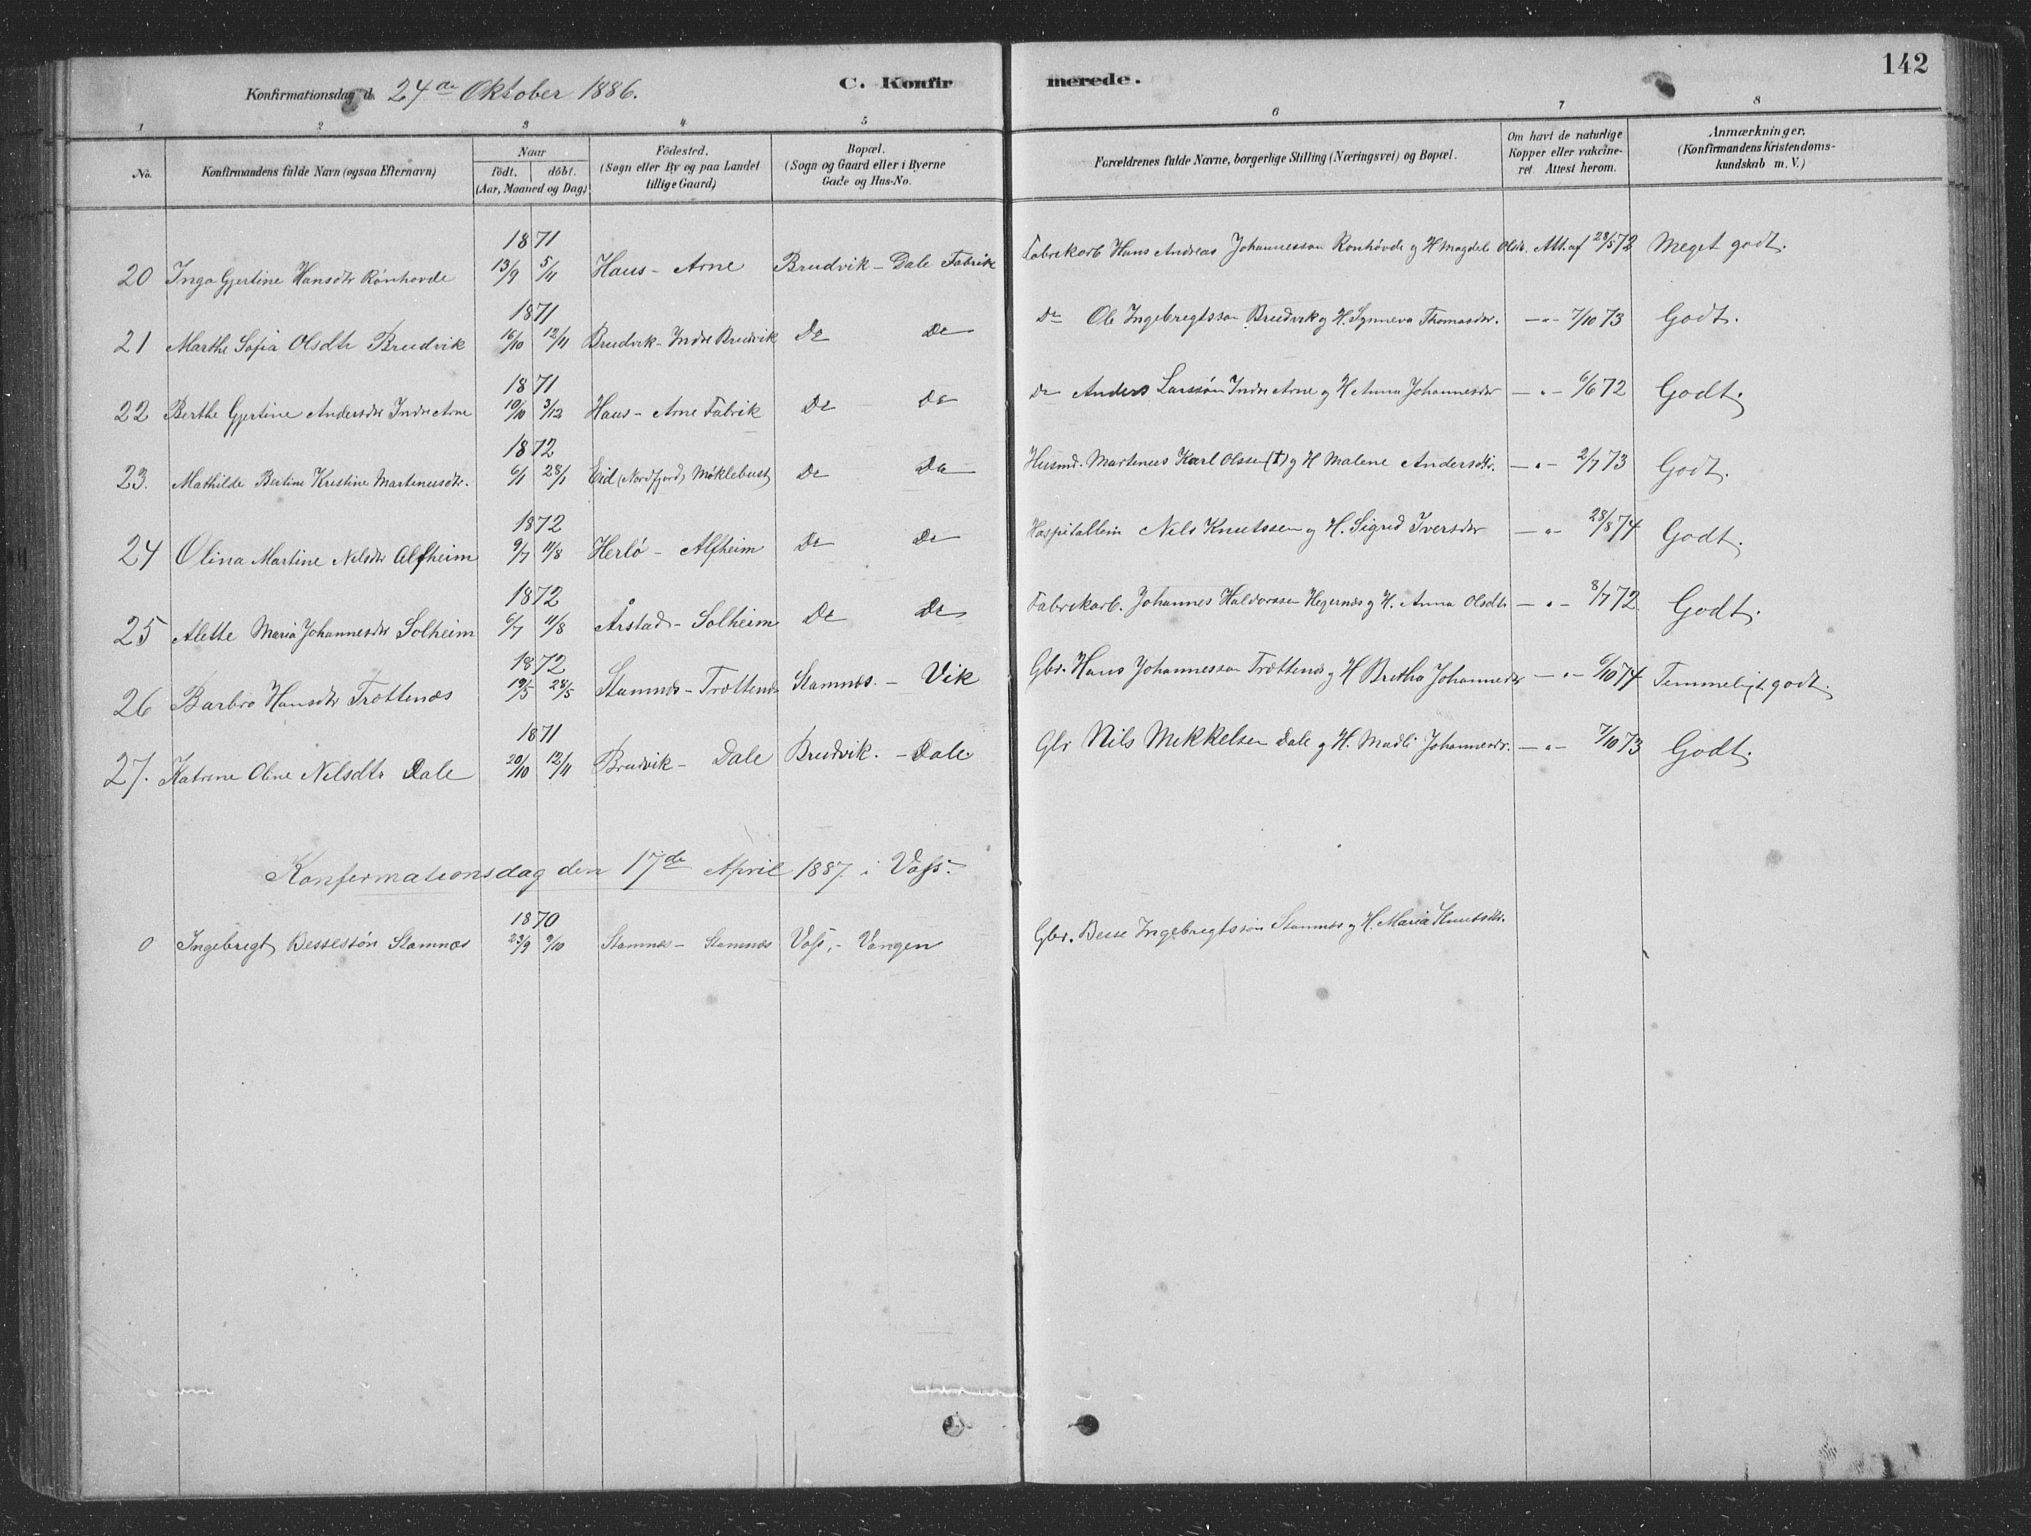 142
Konfirmationsdag d. 24de Oktober 1886. C. Konfirmerede.
1 2 3 4 5 6 7 8
No. Konfirmandens fulde Navn (ogsaa Efternavn) Naar födt. döbt. (Aar, Maaned og Dag) Födested. (Sogn eller By og paa Landet tillige Gaard) Bopæl. (Sogn og Gaard eller i Byerne Gade og Hus-No. Forældrenes fulde Navne, borgerlige Stilling (Næringsvei) og Bopæl. Om havt de naturlige Kopper eller vakcineret. Attest herom. Anmærkninger, (Konfirmandens Kristendomskundskab m. V.)
20 Inga Gjertine Hansdtr Rønhovde 1871 13/9 5/11 Haus - Arne Brudvik - Dale Fabrik Fabrikarb Hans Andreas Johannesson Ronhovde og H Magdel Olsdr. Att. af 28/5 72 Meget godt.
21 Marthe Sofia Olsdtr Brudvik 1871 16/10 12/11 Brudvik - Indre Brudvik Do Do Do Ole Ingebregtsson Brudvik og H. Synneva Thomasdr. —"— 7/10 73 Godt.
22 Berthe Gjertine Andersdtr Indre Arne 1871 10/10 3/12 Haus - Arne Fabrik Do Do Do Anders Larssøn Indre Arne og H Anna Johannesdr —"— 6/6 72 Godt.
23. Mathilde Bertine Kristine Martinusdtr. 1872 6/1 28/1 Eid (Nordfjord) Møklebust Do Do Husmd. Martinus Karl Olsen (†) og H Malene Andersdtr. —"— 2/7 73 Godt.
24 Olina Martine Nilsdtr Alfheim 1872 9/7 11/8 Herlø - Alfheim Do Do Hospitallem Nils Knutssen og H. Sigrid Iversdtr —"— 28/8 74 Godt.
25 Alette Maria Johannesdtr Solheim 1872 6/7 11/8 Årstad - Solheim Do Do Fabrikarb. Johannes Haldorssen Hegernæs og H. Anna Olsdtr —"— 8/7 72 Godt.
26 Barbro Hansdtr Trættenæs 1872 19/5 28/5 Stamnæs - Trættenæs Stamnæs. - Vik Gbr. Hans Johannesson Trættenæs og H Bretha Johannesdtr —"— 6/10 74 Temmeligt godt.
27. Katrine Oline Nilsdtr Dale 1871 20/10 12/11 Brudvik - Dale Brudvik. - Dale Gbr Nils Mikkelsen Dale og H. Madli Johannesdr. —"— 7/10 73 Godt.
Konfirmationsdag den 17de April 1887. i Voss.
0 Ingebregt Bessesøn Stamnæs 1870 23/9 9/10 Stamnæs - Stamnæs Voss, - Vangen Gbr. Besse Ingebregtssøn Stamnæs og H. Maria Knutsdtr.